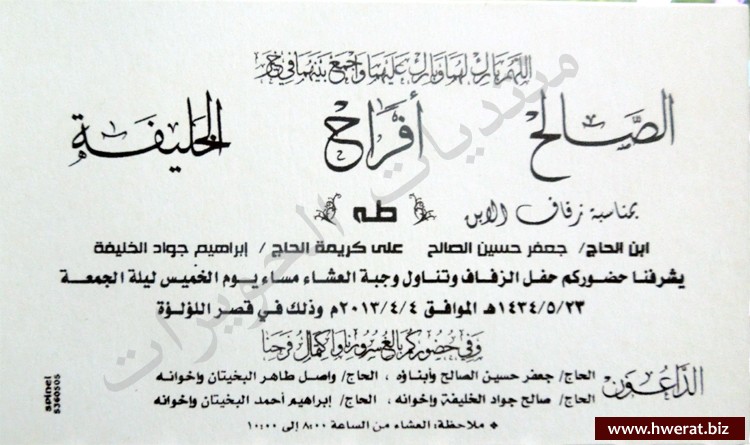 اللهم بارك لهما وبارك عليهما واجمع بينهما في خير
الصالح أفراح الخليفة
بمناسبة زفاف الابن طه
ابن الحاج/ جعفر حسين الصالح على كريمة الحاج/ إبراهيم جواد الخليفة
يشرفنا حضوركم حفل الزفاف وتناول وجبة العشاء مساء يوم الخميس ليلة الجمعة
١٤٣٤/٥/٢٣هـ الموافق ٢٠١٣/٤/٤م وذلك في قصر اللؤلؤة
وفي حضوركم بالغ سرورنا واكتمال فرحنا
الداعون
الحاج/ جعفر حسين الصالح وأبناؤه ، الحاج/ واصل طاهر البخيتان وإخوانه
الحاج/ صالح جواد الخليفة وإخوانه ، الحاج/ إبراهيم أحمد البخيتان وإخوانه
* ملاحظة: العشاء من الساعة ٨:٠٠ إلى ١٠:٠٠ *
spinel
5360505
منتديات الحويرات
www.hwerat.biz